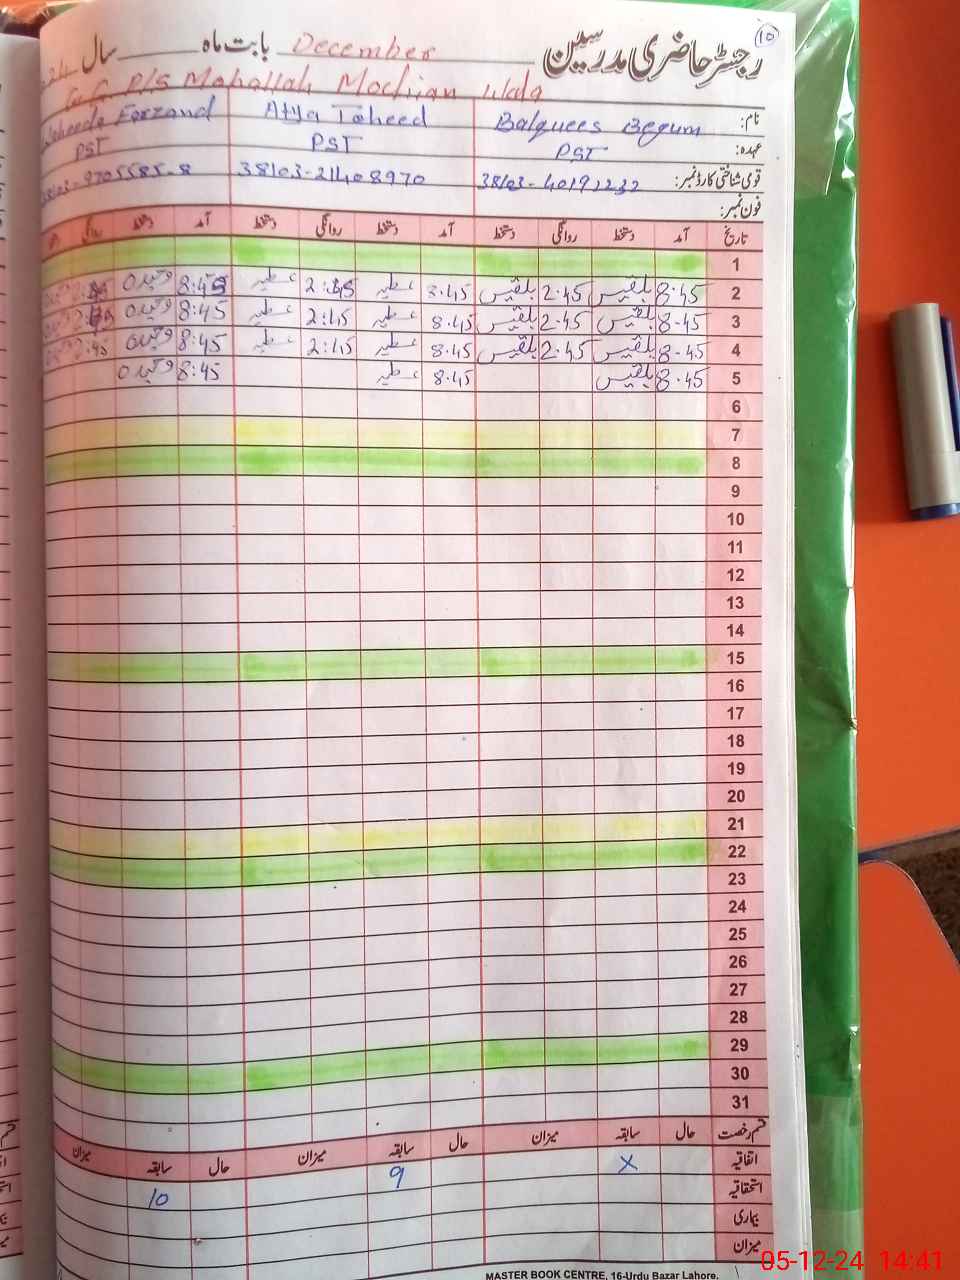 10
رجسٹر حاضری مدرسین بابت ماہ December سال 24
G. G. P/S Mohallah Mochian Wala
نام: Balquees Begum Atya Toheed Waheeda Farzand
عہدہ: PST PST PST
قومی شناختی کارڈ نمبر: 38103-40191232 38103-21408970 38103-9705585-8
فون نمبر:
تاریخ آمد دستخط روانگی دستخط آمد دستخط روانگی دستخط آمد دستخط روانگی
1
2 8-45 بلقیس 2-45 بلقیس 8.45 عطیہ 2:45 عطیہ 8:45
3 8-45 بلقیس 2-45 بلقیس 8.45 عطیہ 2:45 عطیہ 8:45
4 8-45 بلقیس 2-45 بلقیس 8.45 عطیہ 2:45 عطیہ 8:45 2.45
5 8.45 بلقیس 8.45 عطیہ 8:45
6
7
8
9
10
11
12
13
14
15
16
17
18
19
20
21
22
23
24
25
26
27
28
29
30
31
قسم رخصت حال سابقہ میزان حال سابقہ میزان حال سابقہ میزان
اتفاقیہ X 9 10
استحقاقیہ
بیماری
میزان
MASTER BOOK CENTRE, 16-Urdu Bazar Lahore.
05-12-24 14:41